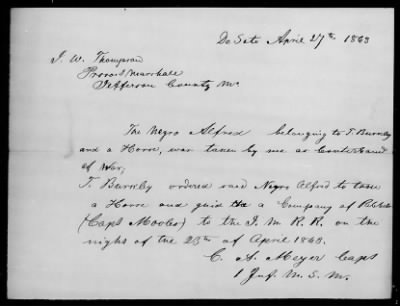 De Soto April 27th 1863
J. W. Thompson
Provost Marshale
Jefferson County Mo
The Negro Alfred belonging to T. Burnby
and a Horse, was taken by me as Contraband
of War,
T. Burnby ordered said Negro Alfred to take
a Horse and guid a Company of Rebbels
(Capt Moobs) to the I. M. R. R. on the
nigth of the 23th of April 1863.
C. A. Meyer Capt
1 Inf. M. S. M.